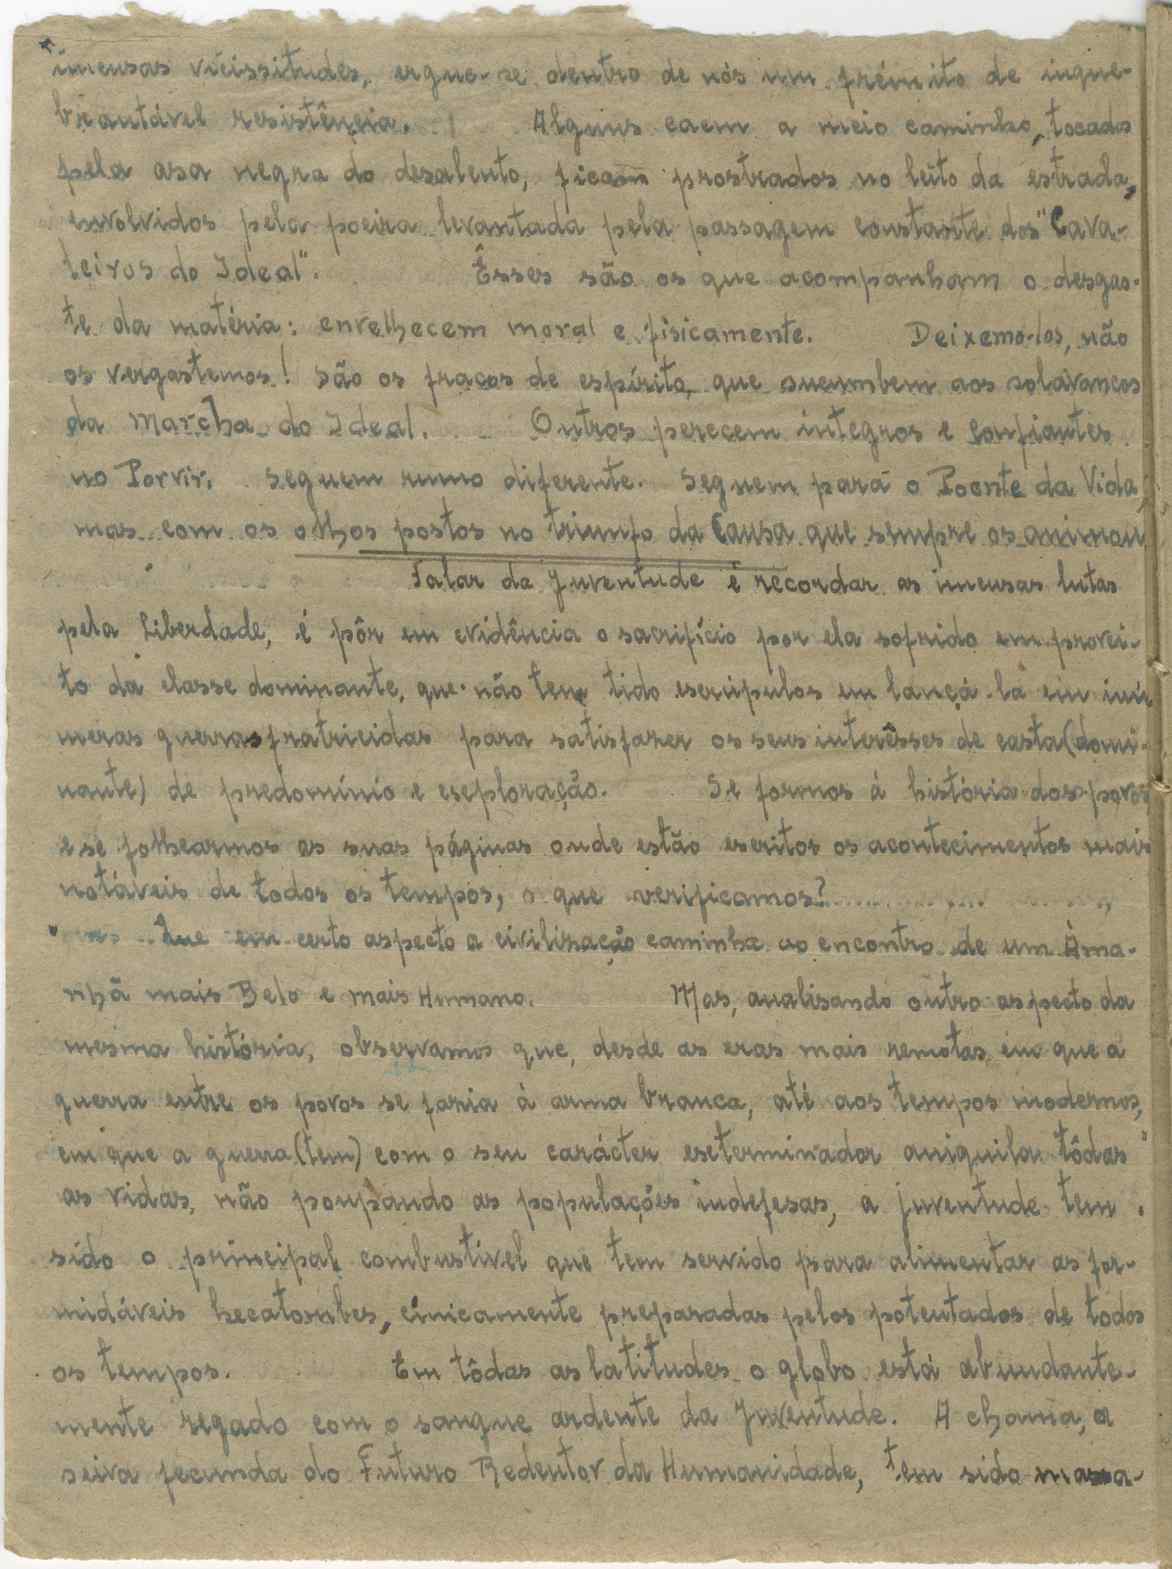 imensas vicissitudes, ergue-se dentro de nós um frémito de inque-
brantável resistência. Alguns caem a meio caminho, tocados
pela asa negra do desalento, ficam prostrados no leito da estrada,
envolvidos pela poeira levantada pela passagem constante dos "Cava-
leiros do Ideal". Êsses são os que acompanham o desgas-
te da matéria: envelhecem moral e fisicamente. Deixemo-los, não
os vergastemos! São os fracos de espírito, que sucumbem aos solavancos
da Marcha do Ideal. Outros perecem integros e confiantes
no Porvir. Seguem rumo diferente. Seguem para o Poente da Vida,
mas com os olhos postos no triunfo da Causa que sempre os animou
Falar da Juventude é recordar as imensas lutas
pela Liberdade, é pôr em evidência o sacrifício por ela sofrido em provei-
to da classe dominante, que não tem tido escrúpulos em lançá-la em inú
meras guerras fratricidas para satisfazer os seus interêsses de casta (domi-
nante) de predomínio e esploração. Se formos á história dos povos
e se folhearmos as suas páginas onde estão escritos os acontecimentos mais
notáveis de todos os tempos, o que verificamos?
Que em certo aspecto a civilização caminha ao encontro de um Àma-
nhã mais Belo e mais Humano. Mas, analisando outro aspecto da
mesma história, observamos que, desde as eras mais remotas em que a
guerra entre os povos se fazia à arma branca, até aos tempos modernos,
em que a guerra (tem) com o seu carácter esterminador aniquila tôdas
as vidas, não poupando as populações indefesas, a juventude tem
sido o principal combustível que tem servido para alimentar as for-
midáveis hecatombes, cínicamente preparadas pelos potentados de todos
os tempos. Em tôdas as latitudes o globo está abundante-
mente regado com o sangue ardente da Juventude. A chama, a
seiva fecunda do Futuro Redentor da Humanidade, tem sido massa-